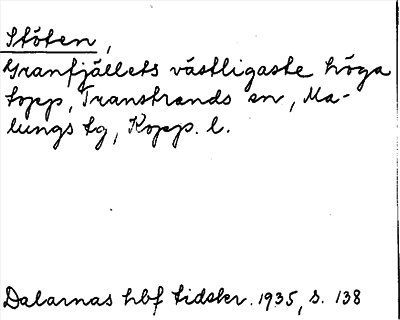 Stöten,
Granfjällets västligaste höga
topp, Transtrands sn, Ma-
lungs tg, Kopp. l.
Dalarnas hbf tidskr. 1935, s. 138